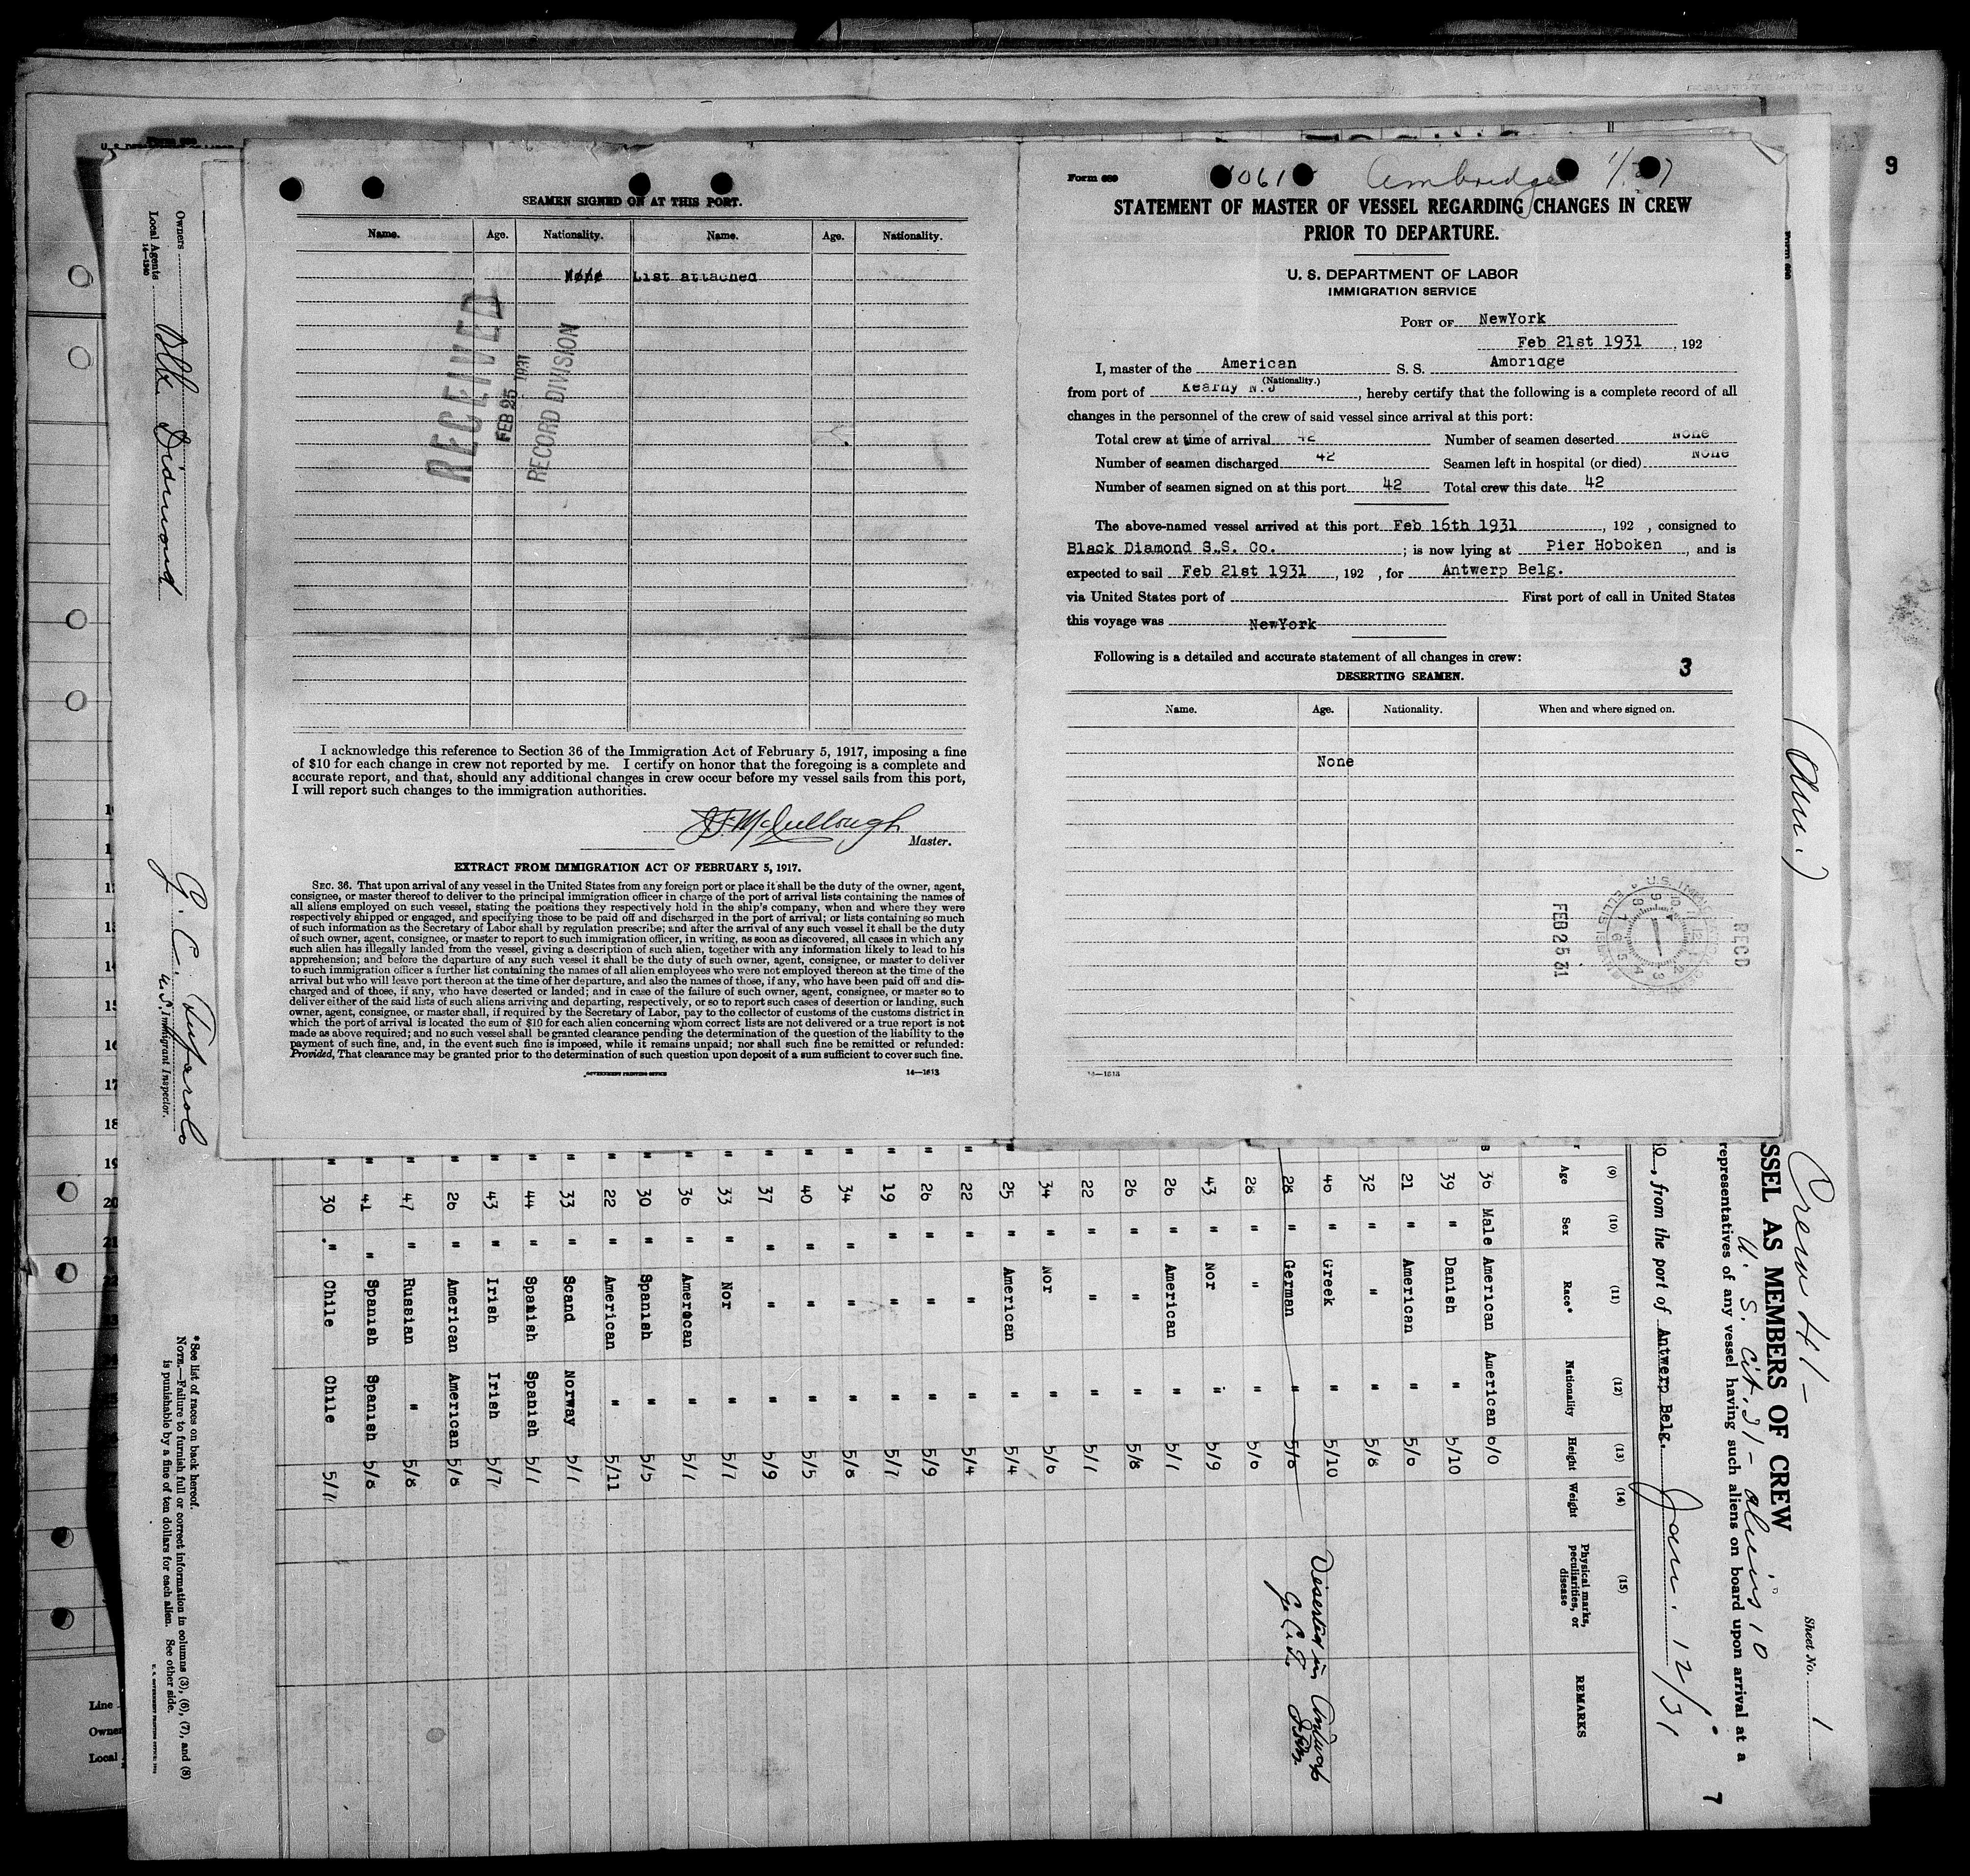 9
SEAMEN SIGNED ON AT THIS PORT.
Name. Age. Nationality. Name. Age. Nationality.
None List attached
RECEIVED
FEB 25 1931
RECORD DIVISION
I acknowledge this reference to Section 36 of the Immigration Act of February 5, 1917, imposing a fine
of $10 for each change in crew not reported by me. I certify on honor that the foregoing is a complete and
accurate report, and that, should any additional changes in crew occur before my vessel sails from this port,
I will report such changes to the immigration authorities.
McCullough
Master.
EXTRACT FROM IMMIGRATION ACT OF FEBRUARY 5, 1917.
SEC. 36. That upon arrival of any vessel in the United States from any foreign port or place it shall be the duty of the owner, agent,
consignee, or master thereof to deliver to the principal immigration officer in charge of the port of arrival lists containing the names of
all aliens employed on such vessel, stating the positions they respectively hold in the ship's company, when and where they were
respectively shipped or engaged, and specifying those to be paid off and discharged in the port of arrival; or lists containing so much
of such information as the Secretary of Labor shall by regulation prescribe; and after the arrival of any such vessel it shall be the duty
of such owner, agent, consignee, or master to report to such immigration officer, in writing, as soon as discovered, all cases in which any
such alien has illegally landed from the vessel, giving a description of such alien, together with any information likely to lead to his
apprehension; and before the departure of any such vessel it shall be the duty of such owner, agent, consignee, or master to deliver
to such immigration officer a further list containing the names of all alien employees who were not employed thereon at the time of the
arrival but who will leave port thereon at the time of her departure, and also the names of those, if any, who have been paid off and dis-
charged and of those, if any, who have deserted or landed; and in case of the failure of such owner, agent, consignee, or master so to
deliver either of the said lists of such aliens arriving and departing, respectively, or so to report such cases of desertion or landing, such
owner, agent, consignee, or master shall, if required by the Secretary of Labor, pay to the collector of customs of the customs district in
which the port of arrival is located the sum of $10 for each alien concerning whom correct lists are not delivered or a true report is not
made as above required; and no such vessel shall be granted clearance pending the determination of the question of the liability to the
payment of such fine, and, in the event such fine is imposed, while it remains unpaid; nor shall such fine be remitted or refunded:
Provided, That clearance may be granted prior to the determination of such question upon deposit of a sum sufficient to cover such fine.
GOVERNMENT PRINTING OFFICE 14—1813
Form 689
061 Ambridge
STATEMENT OF MASTER OF VESSEL REGARDING CHANGES IN CREW
PRIOR TO DEPARTURE.
U. S. DEPARTMENT OF LABOR
IMMIGRATION SERVICE
PORT OF NewYork
Feb 21st 1931, 192
I, master of the American S. S. Ambridge
(Nationality.)
from port of Kearny N.J, hereby certify that the following is a complete record of all
changes in the personnel of the crew of said vessel since arrival at this port:
Total crew at time of arrival 42 Number of seamen deserted None
Number of seamen discharged 42 Seamen left in hospital (or died) None
Number of seamen signed on at this port 42 Total crew this date 42
The above-named vessel arrived at this port Feb 16th 1931, 192 , consigned to
Black Diamond S.S. Co. ; is now lying at Pier Hoboken, and is
expected to sail Feb 21st 1931, 192 , for Antwerp Belg.
via United States port of First port of call in United States
this voyage was NewYork
Following is a detailed and accurate statement of all changes in crew:
3
DESERTING SEAMEN.
Name. Age. Nationality. When and where signed on.
None
RECD
FEB 25 31
14—1813
Owners Blk Diamond
Local Agents
14—1240
G. C. Tufarolo
U.S. Immigrant Inspector.
(Am.)
Crew 41-
U. S. Cit. 31 - aliens 10
Sheet No. 1
SSEL AS MEMBERS OF CREW
representatives of any vessel having such aliens on board upon arrival at a
7
, from the port of Antwerp Belg. Jan. 12/31
(9) (10) (11) (12) (13) (14) (15)
Age Sex Race* Nationality Height Weight Physical marks, peculiarities, or disease REMARKS
36 Male American American 6/0
39 " Danish " 5/10
21 " American " 5/6
32 " " " 5/8
40 " Greek " 5/10
28 " German " 5/6 Deserted in Antwerp
G.C.T.
28 " " " 5/6
43 " Nor " 5/9
26 " American " 5/7
26 " " " 5/8
22 " " " 5/7
34 " Nor " 5/6
25 " American " 5/4
22 " " " 5/4
26 " " " 5/9
19 " " " 5/7
34 " " " 5/8
40 " " " 5/5
37 " " " 5/9
33 " Nor " 5/7
36 " American " 5/7
30 " Spanish " 5/5
22 " American " 5/11
33 " Scand Norway 5/7
44 " Spanish Spanish 5/7
43 " Irish Irish 5/7
26 " American American 5/8
47 " Russian " 5/8
41 " Spanish Spanish 5/8
30 " Chile Chile 5/7
*See list of races on back hereof.
NOTE.—Failure to furnish full or correct information in columns (3), (6), (7), and (8)
is punishable by a fine of ten dollars for each alien. See other side.
17
18
19
20
21
Line
Owner
Local